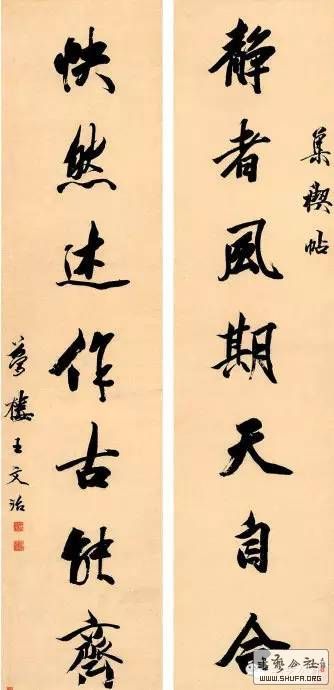 集禊帖
静者風期天自合
快然述作古能齊
夢樓王文治
書藝公社
WWW.SHUFA.ORG